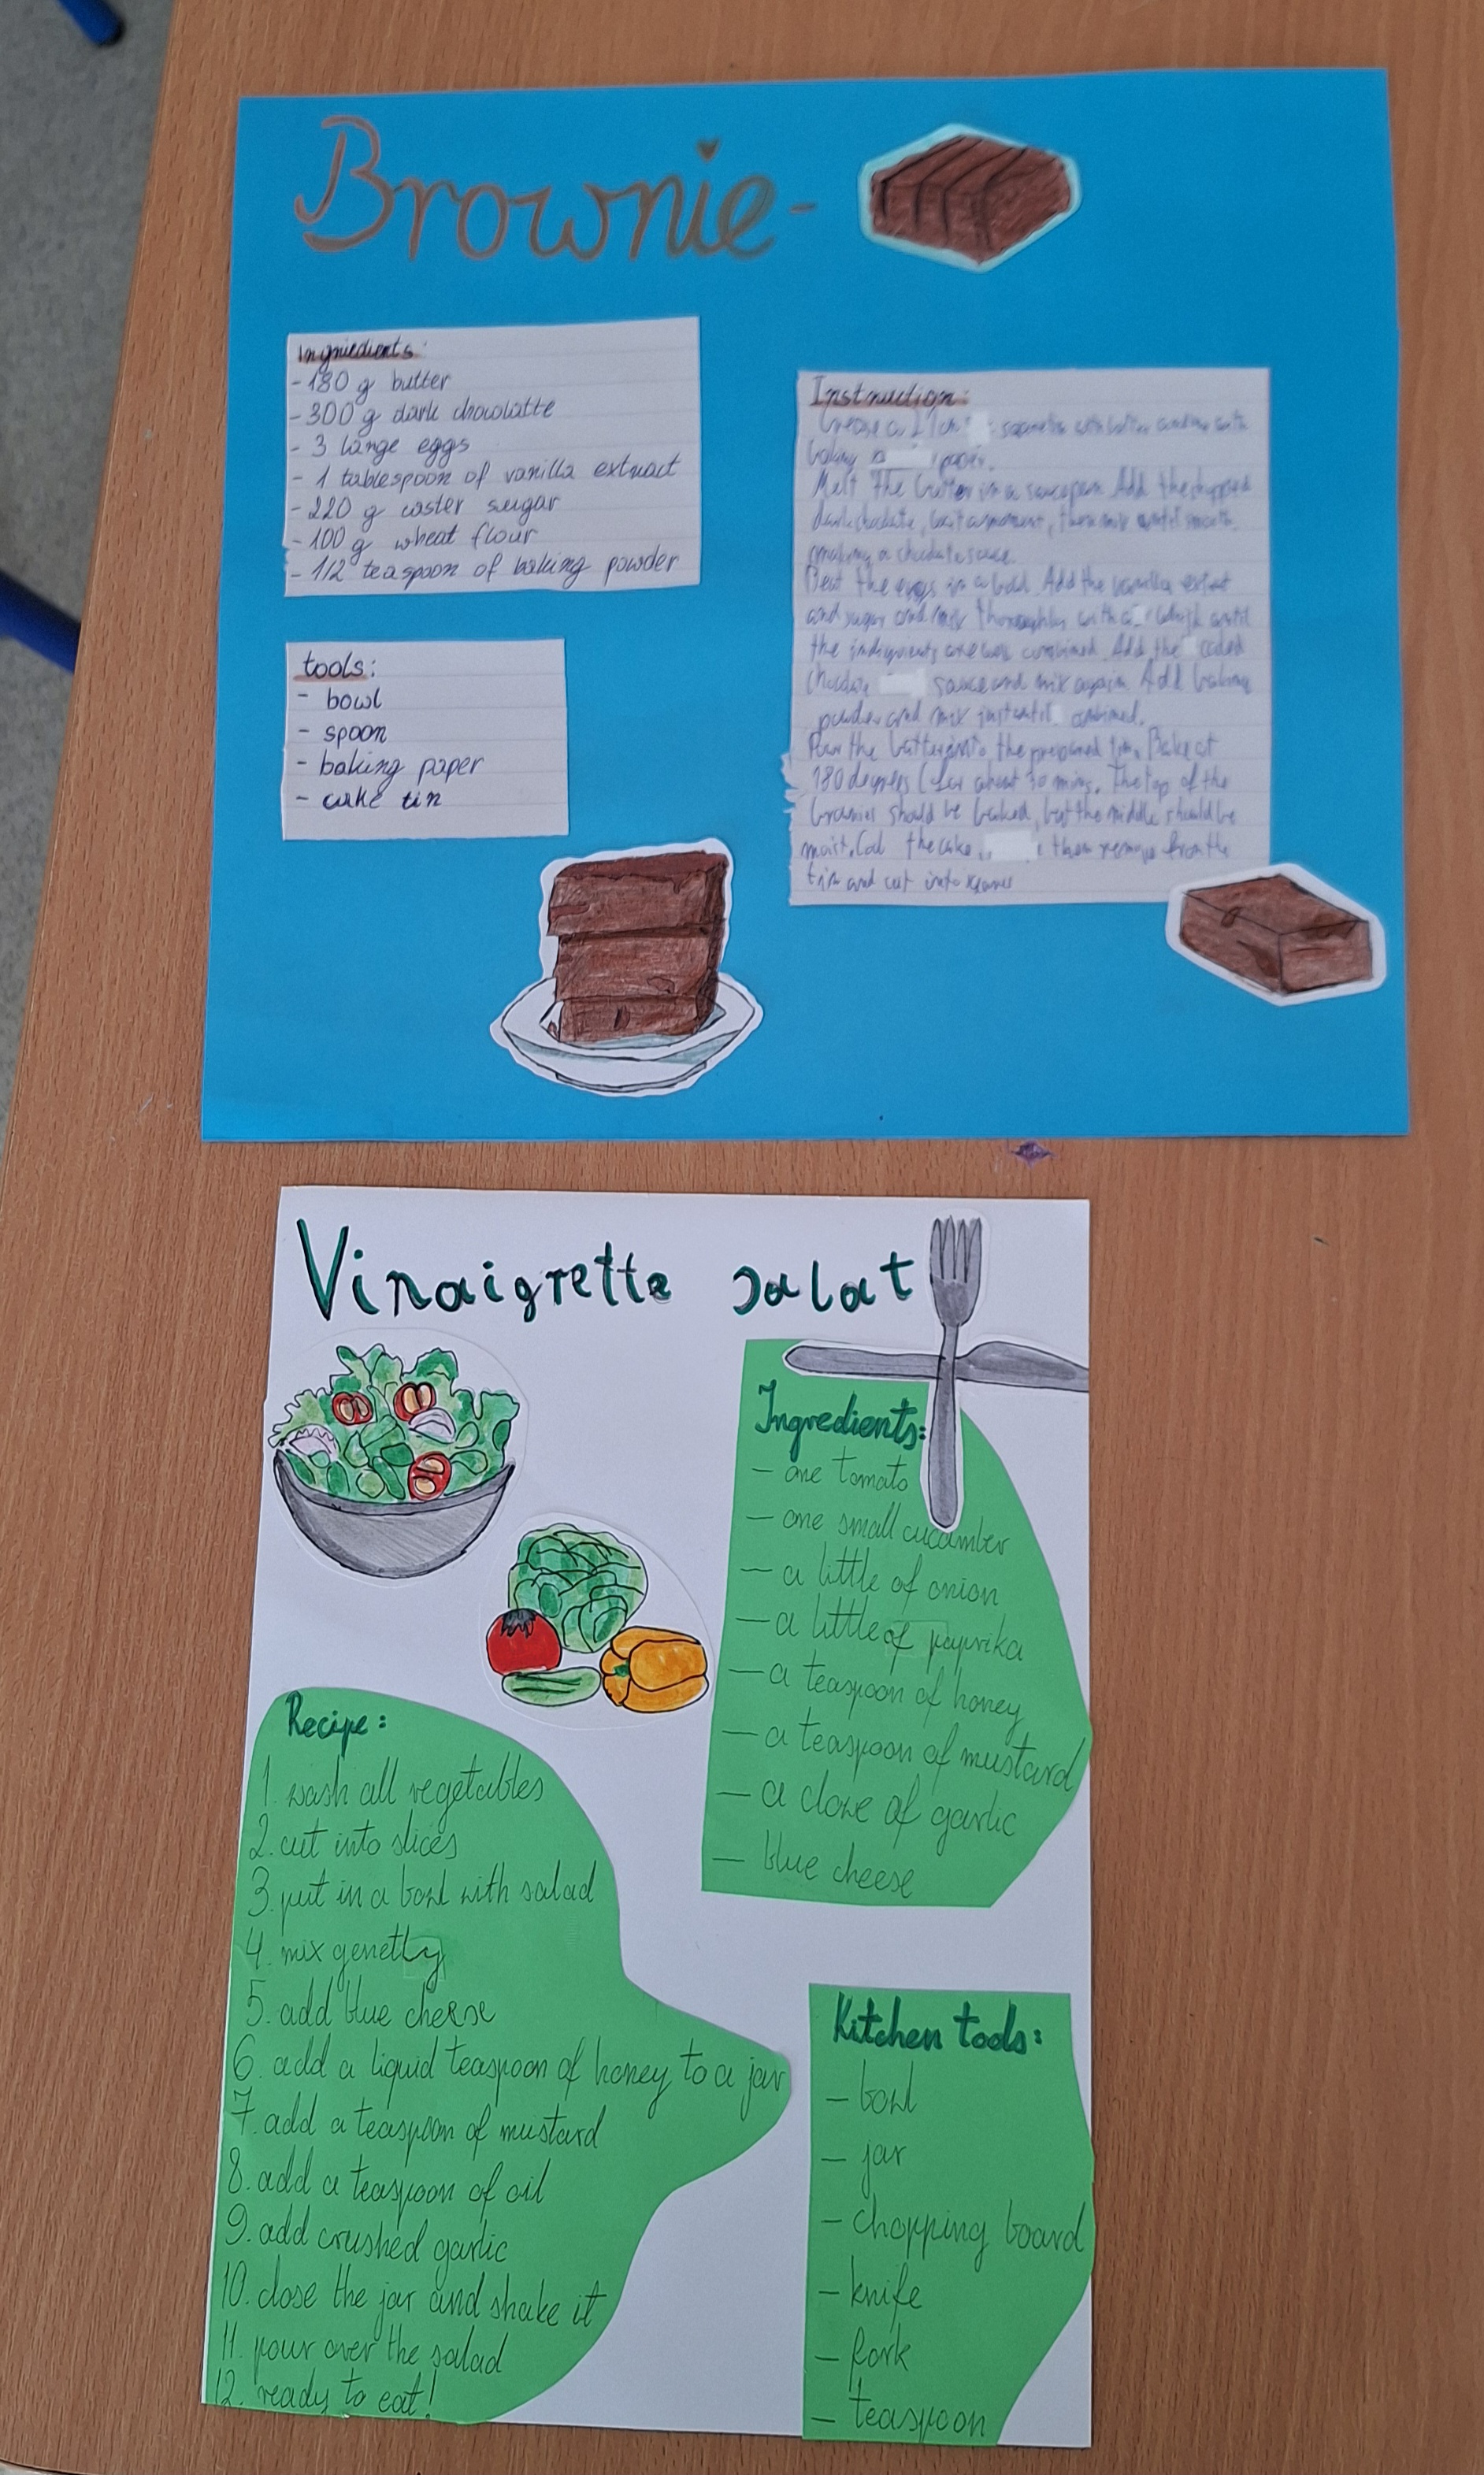 Brownie-
Ingriedients:
- 180 g butter
- 300 g dark chocolatte
- 3 large eggs
- 1 tablespoon of vanilla extract
- 220 g caster sugar
- 100 g wheat flour
- 1/2 teaspoon of baking powder
tools:
- bowl
- spoon
- baking paper
- cake tin
Instruction:
Grease a
baking paper.
Melt the butter in a saucepan. Add the chopped
dark chocolate, wait a moment, then mix until smooth,
making a chocolate sauce.
Beat the eggs in a bowl. Add the vanilla extract
and sugar and mix thoroughly with a whisk until
the are well combined. Add the cooled
sauce and mix again. Add baking
powder and mix just until combined.
Pour the batter into the prepared tin. Bake at
180 degrees C for about 30 mins. The top of the
brownies should be baked, but the middle should be
moist. Cool the cake, then remove from the
tin and cut into squares
Vinaigrette salat
Ingredients:
- one tomato
- one small cucumber
- a little of onion
- a little of paprika
- a teaspoon of honey
- a teaspoon of mustard
- a clove of garlic
- blue cheese
Recipe:
1. wash all vegetables
2. cut into slices
3. put in a bowl with salad
4. mix genetly
5. add blue cheese
6. add a liquid teaspoon of honey to a jar
7. add a teaspoon of mustard
8. add a teaspoon of oil
9. add crushed garlic
10. close the jar and shake it
11. pour over the salad
12. ready to eat!
Kitchen tools:
- bowl
- jar
- chopping board
- knife
- fork
- teaspoon